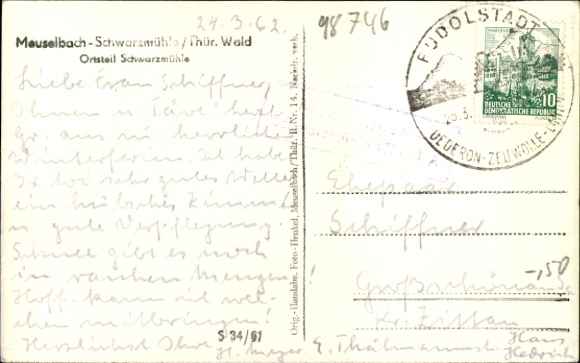 24.3.62.
98746
Meuselbach-Schwarzmühle/Thür. Wald
Ortsteil Schwarzmühle
RUDOLSTADT
DEUTSCHE
DEMOKRATISCHE REPUBLIK
10
DEDERON-ZELLWOLLE
Liebe Frau Schiffner,
Ihnen u.
Gr. aus
Winterferien. Ich habe
sehr gutes Wetter
ein hübsches Zimmer
u. gute Verpflegung.
Schnee gibt es noch
in rauhen Mengen!
Hoff. kann ich wel-
chen mitbringen!
Herzlichst Ihre
H. Meyer.
S 34/61
Orig.-Handabz. Foto-Henkel, Meuselbach/Thür. H Nr. 14. Nachdr. verb.
Ehepaar
Schiffner
-,50
Großschönau
Kr. Zittau
E. Thälmannstr.
Haus
Hedrich